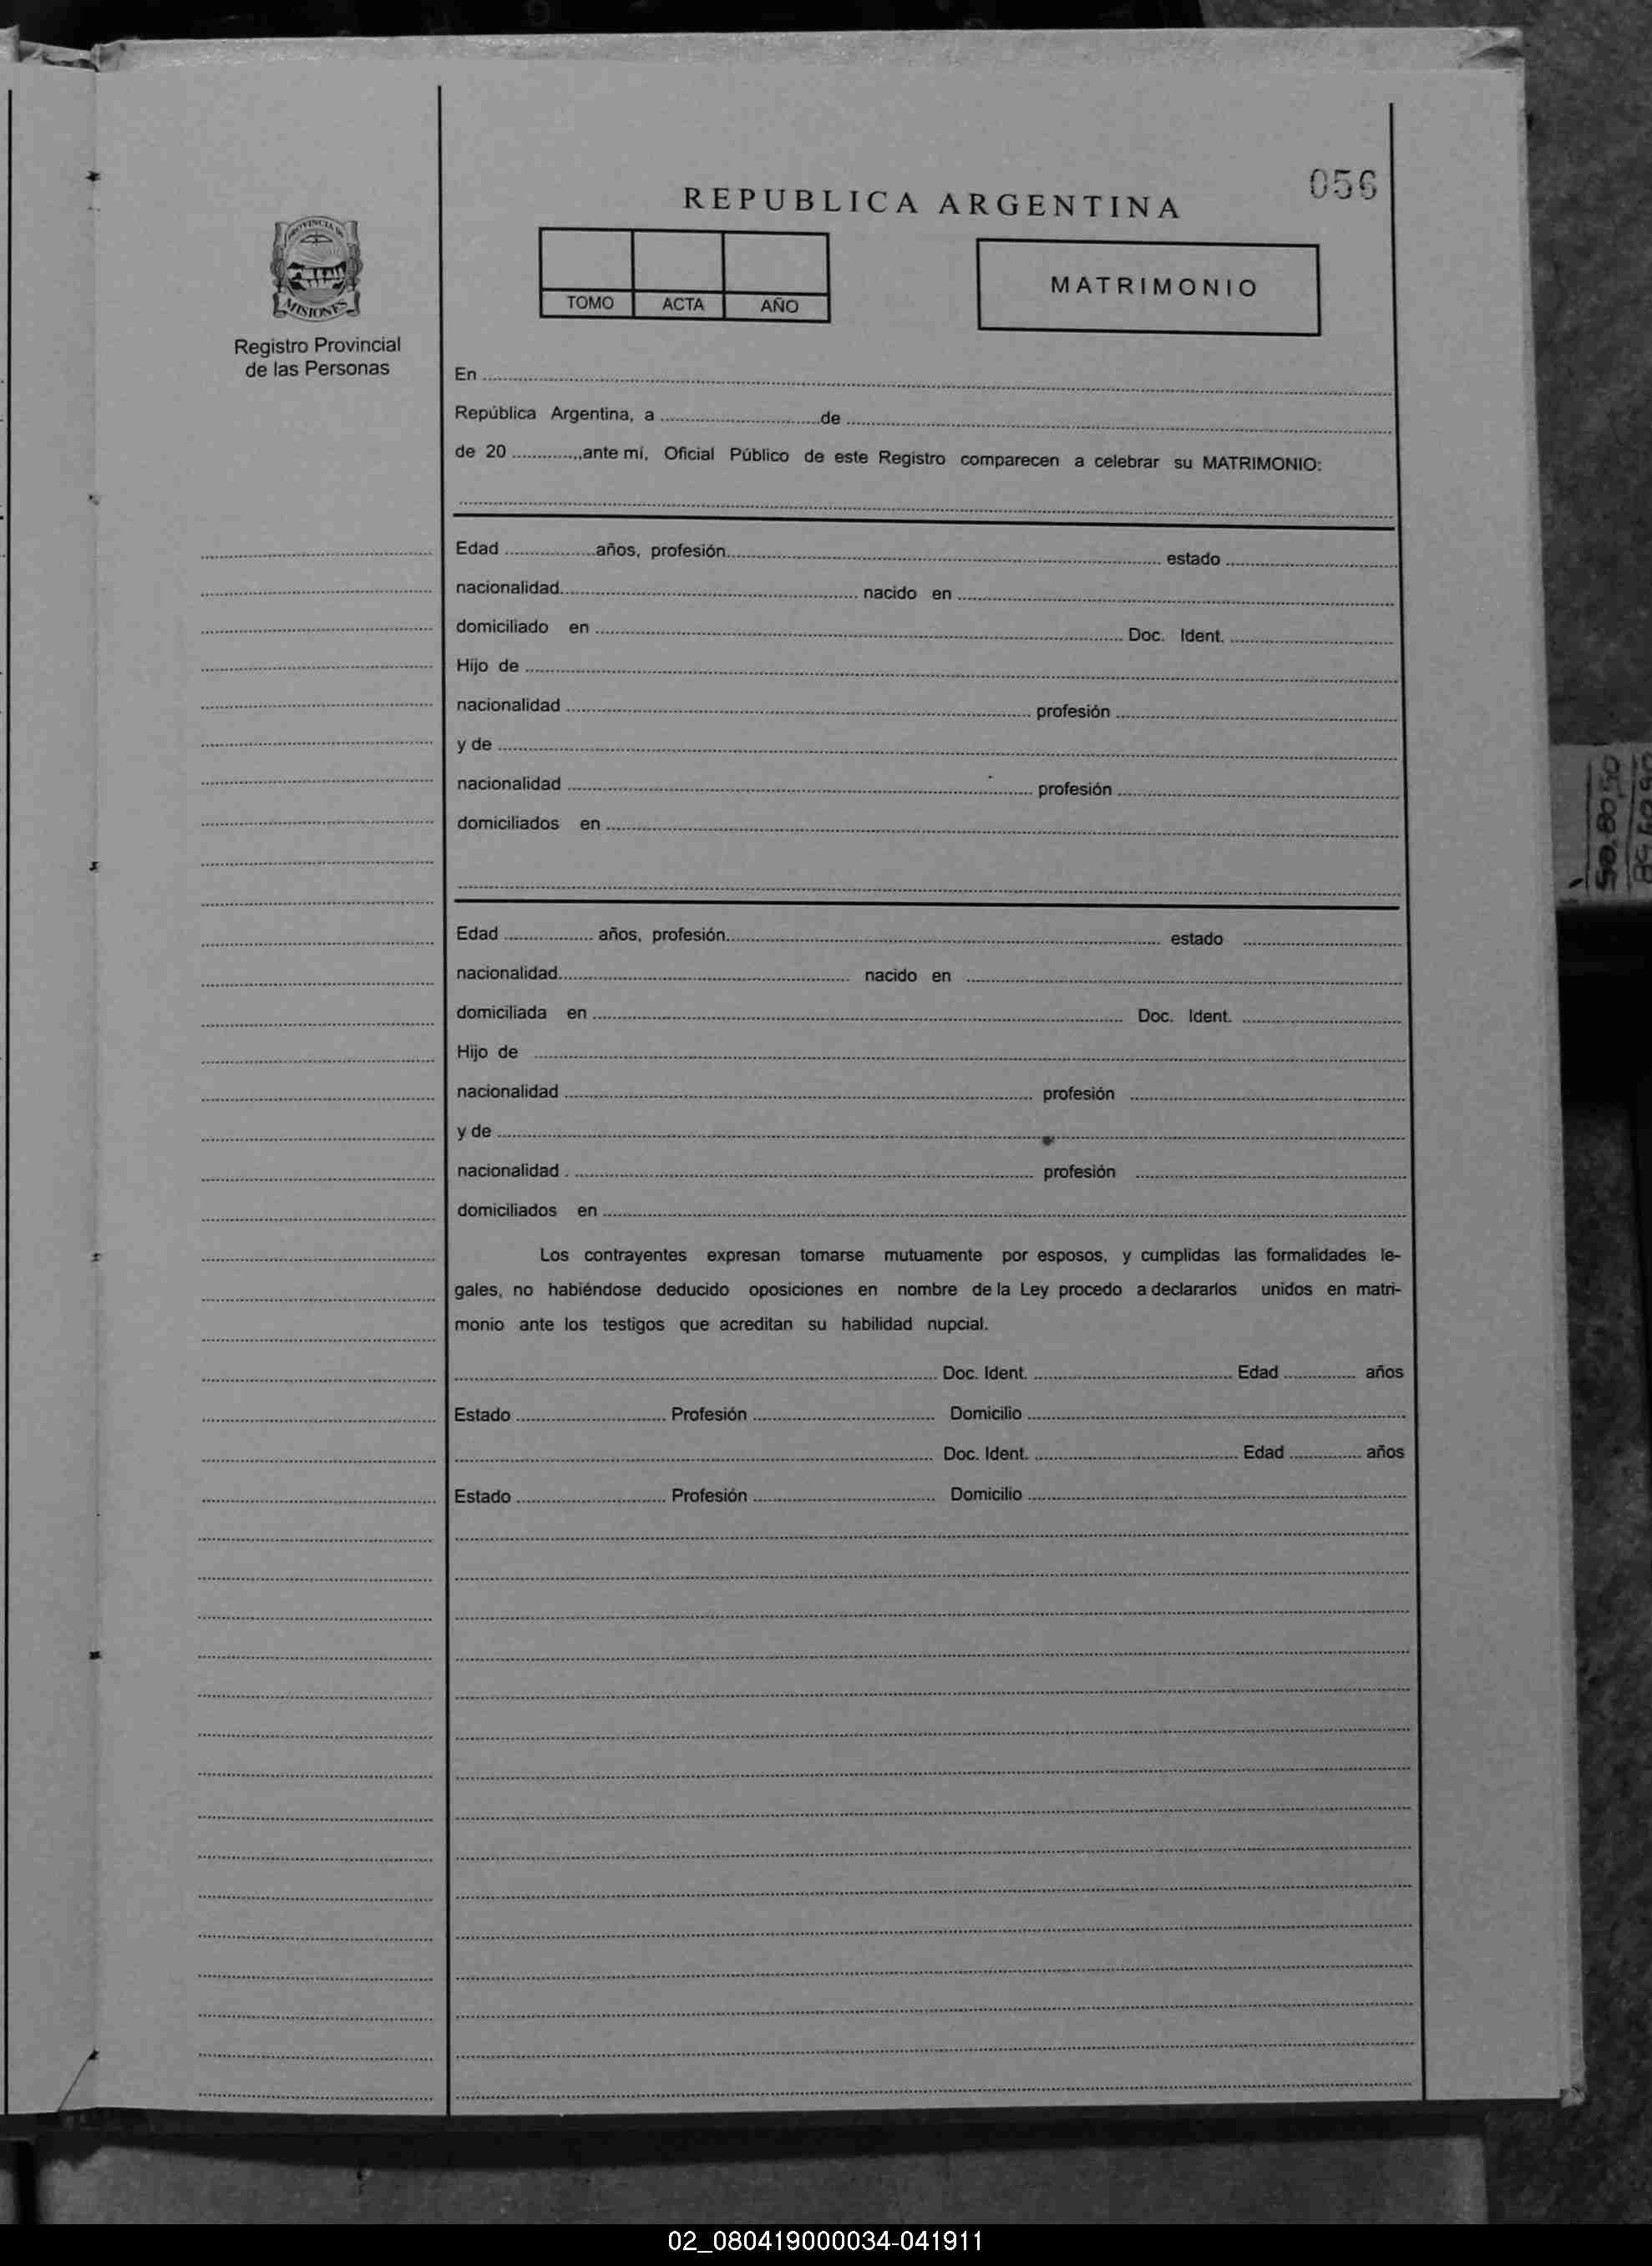 056
REPUBLICA ARGENTINA
PROVINCIA DE
MISIONES
Registro Provincial
de las Personas
TOMO ACTA AÑO
MATRIMONIO
En
República Argentina, a de
de 20 ante mí, Oficial Público de este Registro comparecen a celebrar su MATRIMONIO:
Edad años, profesión estado
nacionalidad nacido en
domiciliado en Doc. Ident.
Hijo de
nacionalidad profesión
y de
nacionalidad profesión
domiciliados en
Edad años, profesión estado
nacionalidad nacido en
domiciliada en Doc. Ident.
Hijo de
nacionalidad profesión
y de
nacionalidad profesión
domiciliados en
Los contrayentes expresan tomarse mutuamente por esposos, y cumplidas las formalidades le-
gales, no habiéndose deducido oposiciones en nombre de la Ley procedo a declararlos unidos en matri-
monio ante los testigos que acreditan su habilidad nupcial.
Doc. Ident. Edad años
Estado Profesión Domicilio
Doc. Ident. Edad años
Estado Profesión Domicilio
02_080419000034-041911